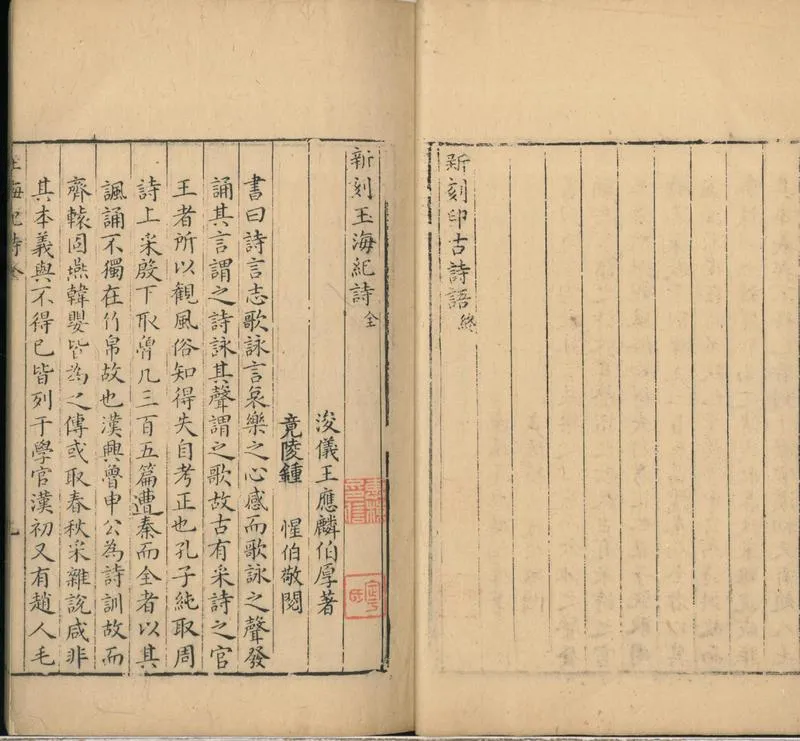 新刻印古詩語終
新刻玉海紀詩全
浚儀王應麟伯厚著
竟陵鍾　惺伯敬閱
書曰詩言志歌詠言哀樂之心感而歌詠之聲發
誦其言謂之詩詠其聲謂之歌故古有采詩之官
王者所以觀風俗知得失自考正也孔子純取周
詩上采殷下取魯凡三百五篇遭秦而全者以其
諷誦不獨在竹帛故也漢興魯申公為詩訓故而
齊轅固燕韓嬰皆為之傳或取春秋采雜說咸非
其本義與不得已皆列于學官漢初又有趙人毛
玉海紀詩全